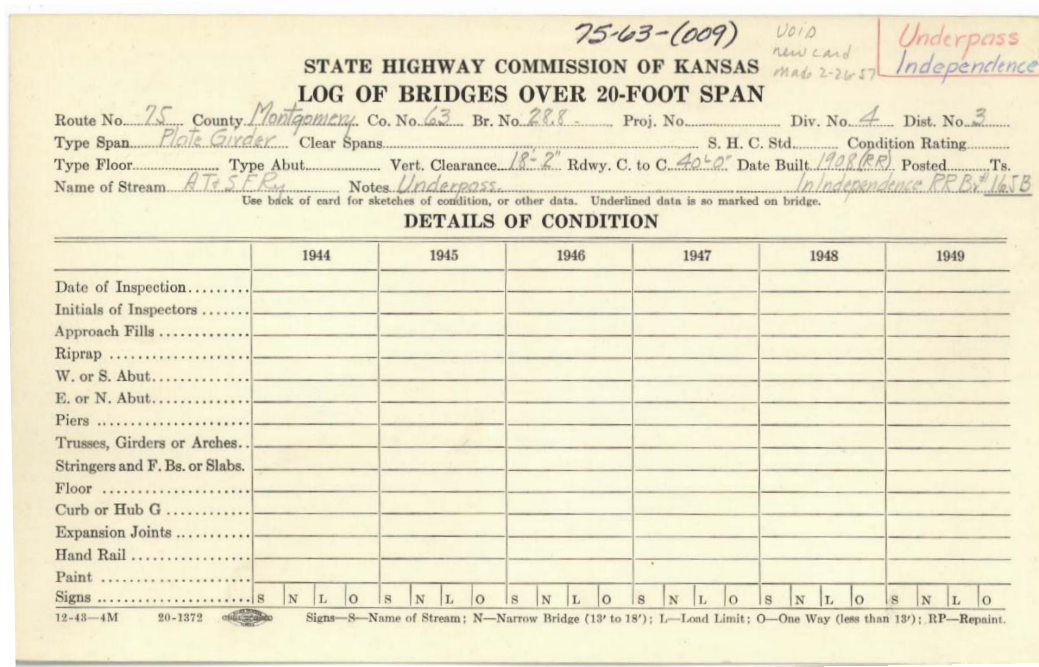 75-63-(009)
VOID
new card
made 2-26-57
Underpass
Independence
STATE HIGHWAY COMMISSION OF KANSAS
LOG OF BRIDGES OVER 20-FOOT SPAN
Route No. 75 County Montgomery Co. No. 63 Br. No. 28.8 - Proj. No. Div. No. 4 Dist. No. 3
Type Span Plate Girder Clear Spans S. H. C. Std. Condition Rating
Type Floor Type Abut. Vert. Clearance 18'-2" Rdwy. C. to C. 40'-0" Date Built 1908 (RR) Posted Ts.
Name of Stream AT&SFRy Notes Underpass. In Independence RR Br # 165B
Use back of card for sketches of condition, or other data. Underlined data is so marked on bridge.
DETAILS OF CONDITION
1944 1945 1946 1947 1948 1949
Date of Inspection
Initials of Inspectors
Approach Fills
Riprap
W. or S. Abut.
E. or N. Abut.
Piers
Trusses, Girders or Arches
Stringers and F. Bs. or Slabs.
Floor
Curb or Hub G
Expansion Joints
Hand Rail
Paint
Signs S N L O S N L O S N L O S N L O S N L O S N L O
12-43—4M 20-1372 Signs—S—Name of Stream; N—Narrow Bridge (13' to 18'); L—Load Limit; O—One Way (less than 13'); RP—Repaint.